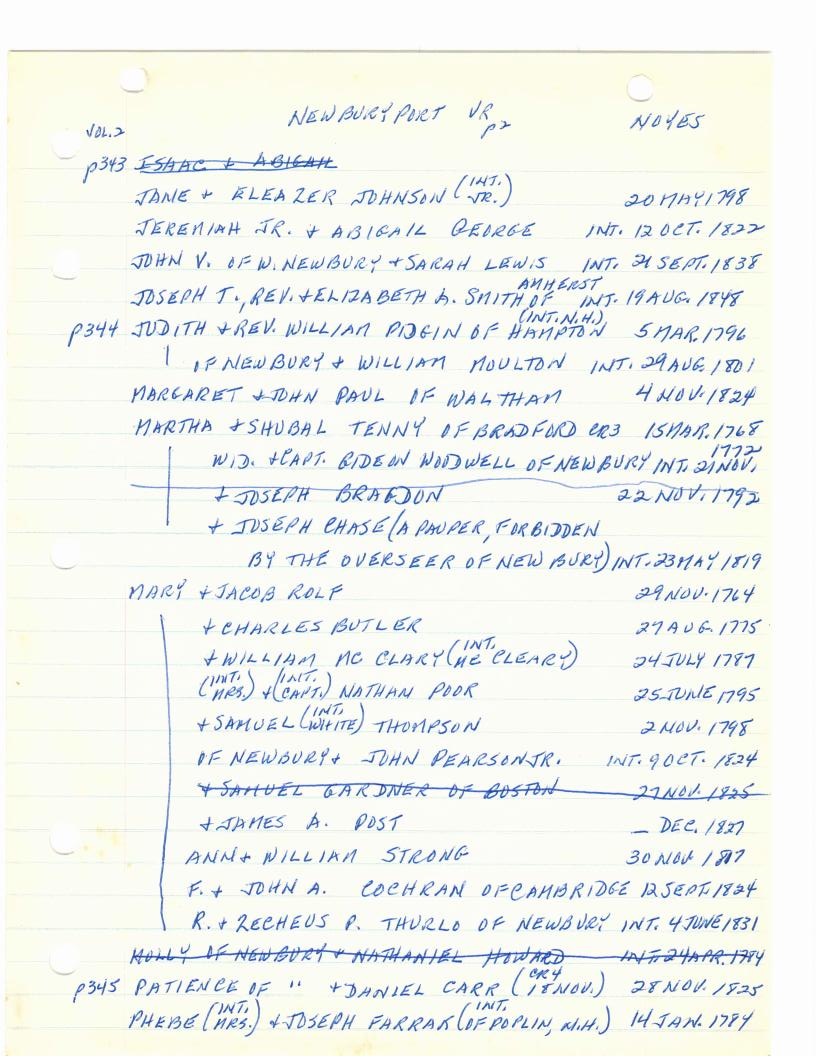 NEWBURYPORT VR p2 NOYES
VOL.2
p343 ISAAC & ABIGAIL
JANE + ELEAZER JOHNSON (INT. JR.) 20 MAY 1798
JEREMIAH JR. + ABIGAIL GEORGE INT. 12 OCT. 1822
JOHN V. OF W. NEWBURY + SARAH LEWIS INT. 21 SEPT. 1838
JOSEPH T., REV. + ELIZABETH A. SMITH OF AMHERST INT. 19 AUG. 1848
p344 JUDITH + REV. WILLIAM PIDGIN OF HAMPTON (INT. N.H.) 5 MAR. 1796
OF NEWBURY + WILLIAM MOULTON INT. 29 AUG. 1801
MARGARET + JOHN PAUL OF WALTHAM 4 NOV. 1824
MARTHA + SHUBAL TENNY OF BRADFORD CR3 15 MAR. 1768
WID. + CAPT. GIDEON WOODWELL OF NEWBURY INT. 21 NOV. 1772
+ JOSEPH BRAGDON 22 NOV. 1792
+ JOSEPH CHASE (A PAUPER, FORBIDDEN
BY THE OVERSEER OF NEWBURY) INT. 23 MAY 1819
MARY + JACOB ROLF 29 NOV. 1764
+ CHARLES BUTLER 27 AUG. 1775
+ WILLIAM MC CLARY (INT. MC CLEARY) 24 JULY 1787
(INT. MRS.) + (INT. CAPT.) NATHAN POOR 25 JUNE 1795
+ SAMUEL (INT. WHITE) THOMPSON 2 NOV. 1798
OF NEWBURY + JOHN PEARSON JR. INT. 9 OCT. 1824
+ SAMUEL GARDNER OF BOSTON 27 NOV. 1825
+ JAMES A. POST _ DEC. 1827
ANN + WILLIAM STRONG 30 NOV
F. + JOHN A. COCHRAN OF CAMBRIDGE 12 SEPT. 1824
R. + ZECHEUS P. THURLO OF NEWBURY INT. 4 JUNE 1831
MOLLY OF NEWBURY + NATHANIEL HOWARD INT. 24 APR. 1784
p345 PATIENCE OF " + DANIEL CARR (CR4 18 NOV.) 28 NOV. 1825
PHEBE (INT. MRS.) + JOSEPH FARRAR (INT. OF POPLIN, N.H.) 14 JAN. 1784